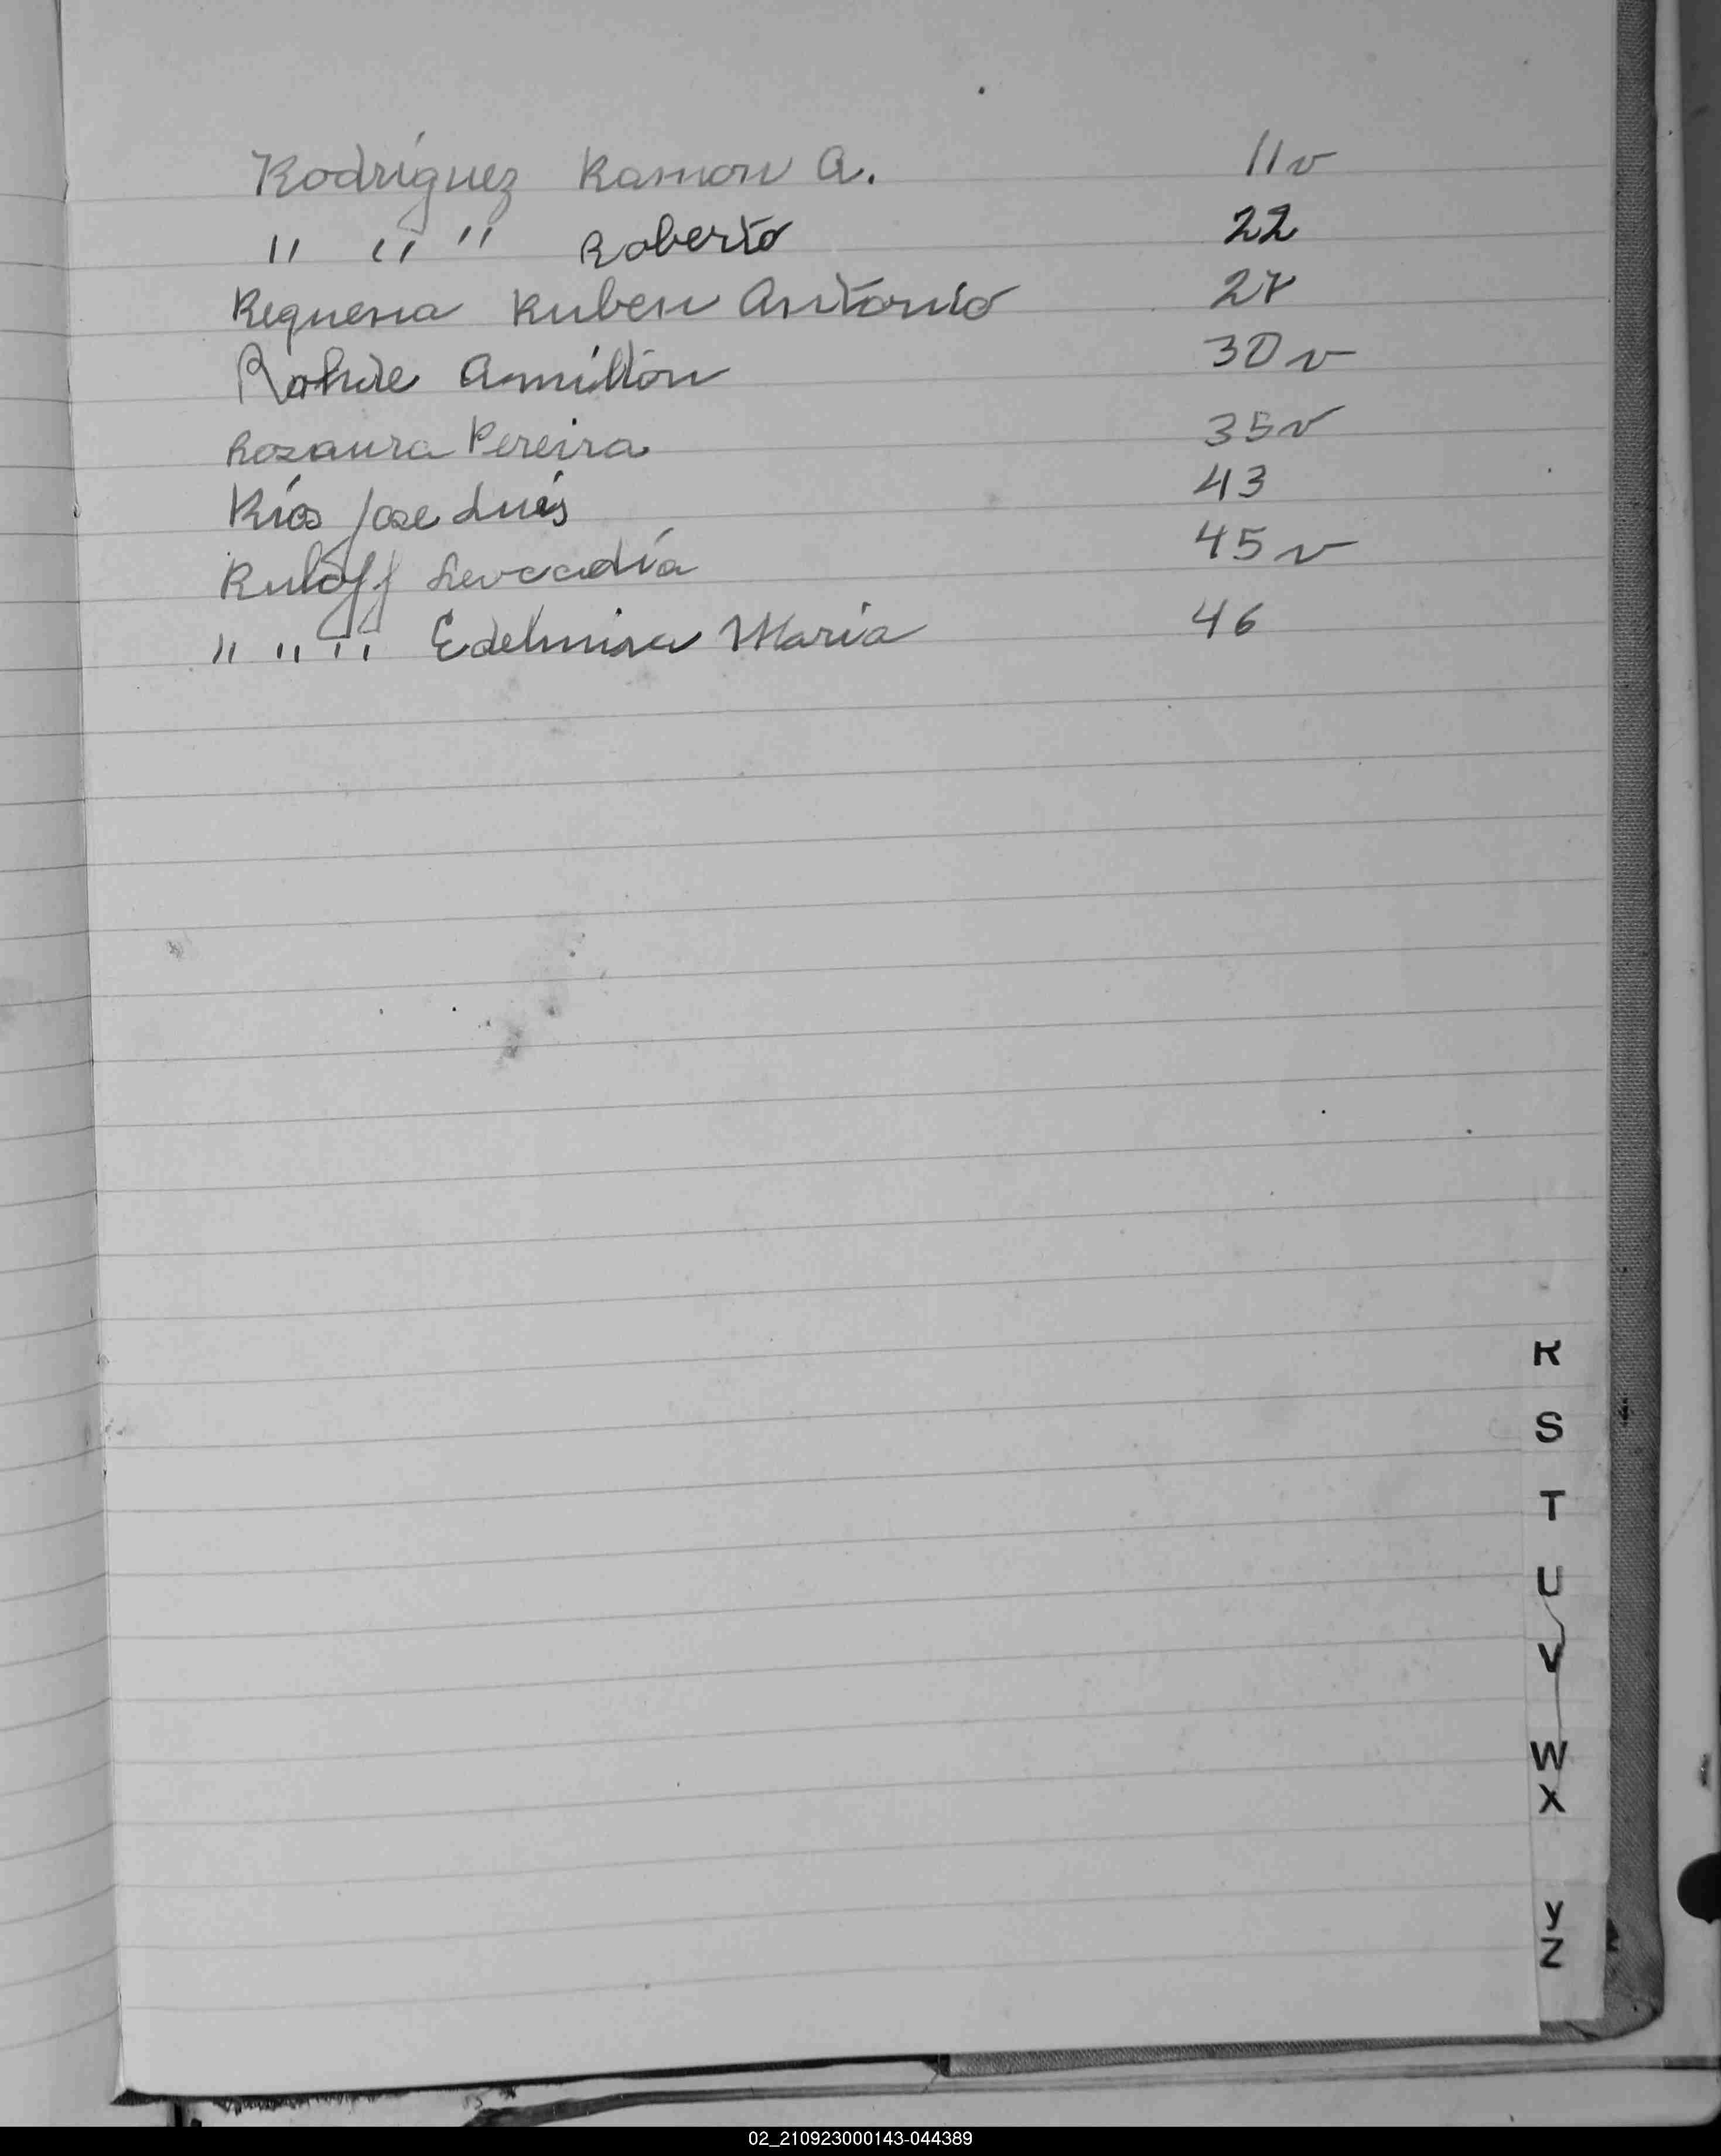 Rodríguez Ramon A. 11v
" " " Roberto 22
Requena Ruben Antonio 27
Rohde Amilton 30v
Rozaura Pereira 35v
Ríos Jose Luis 43
Ruloff Leocadia 45v
" " " Edelmira Maria 46
R
S
T
U
V
W
X
Y
Z
02_210923000143-044389